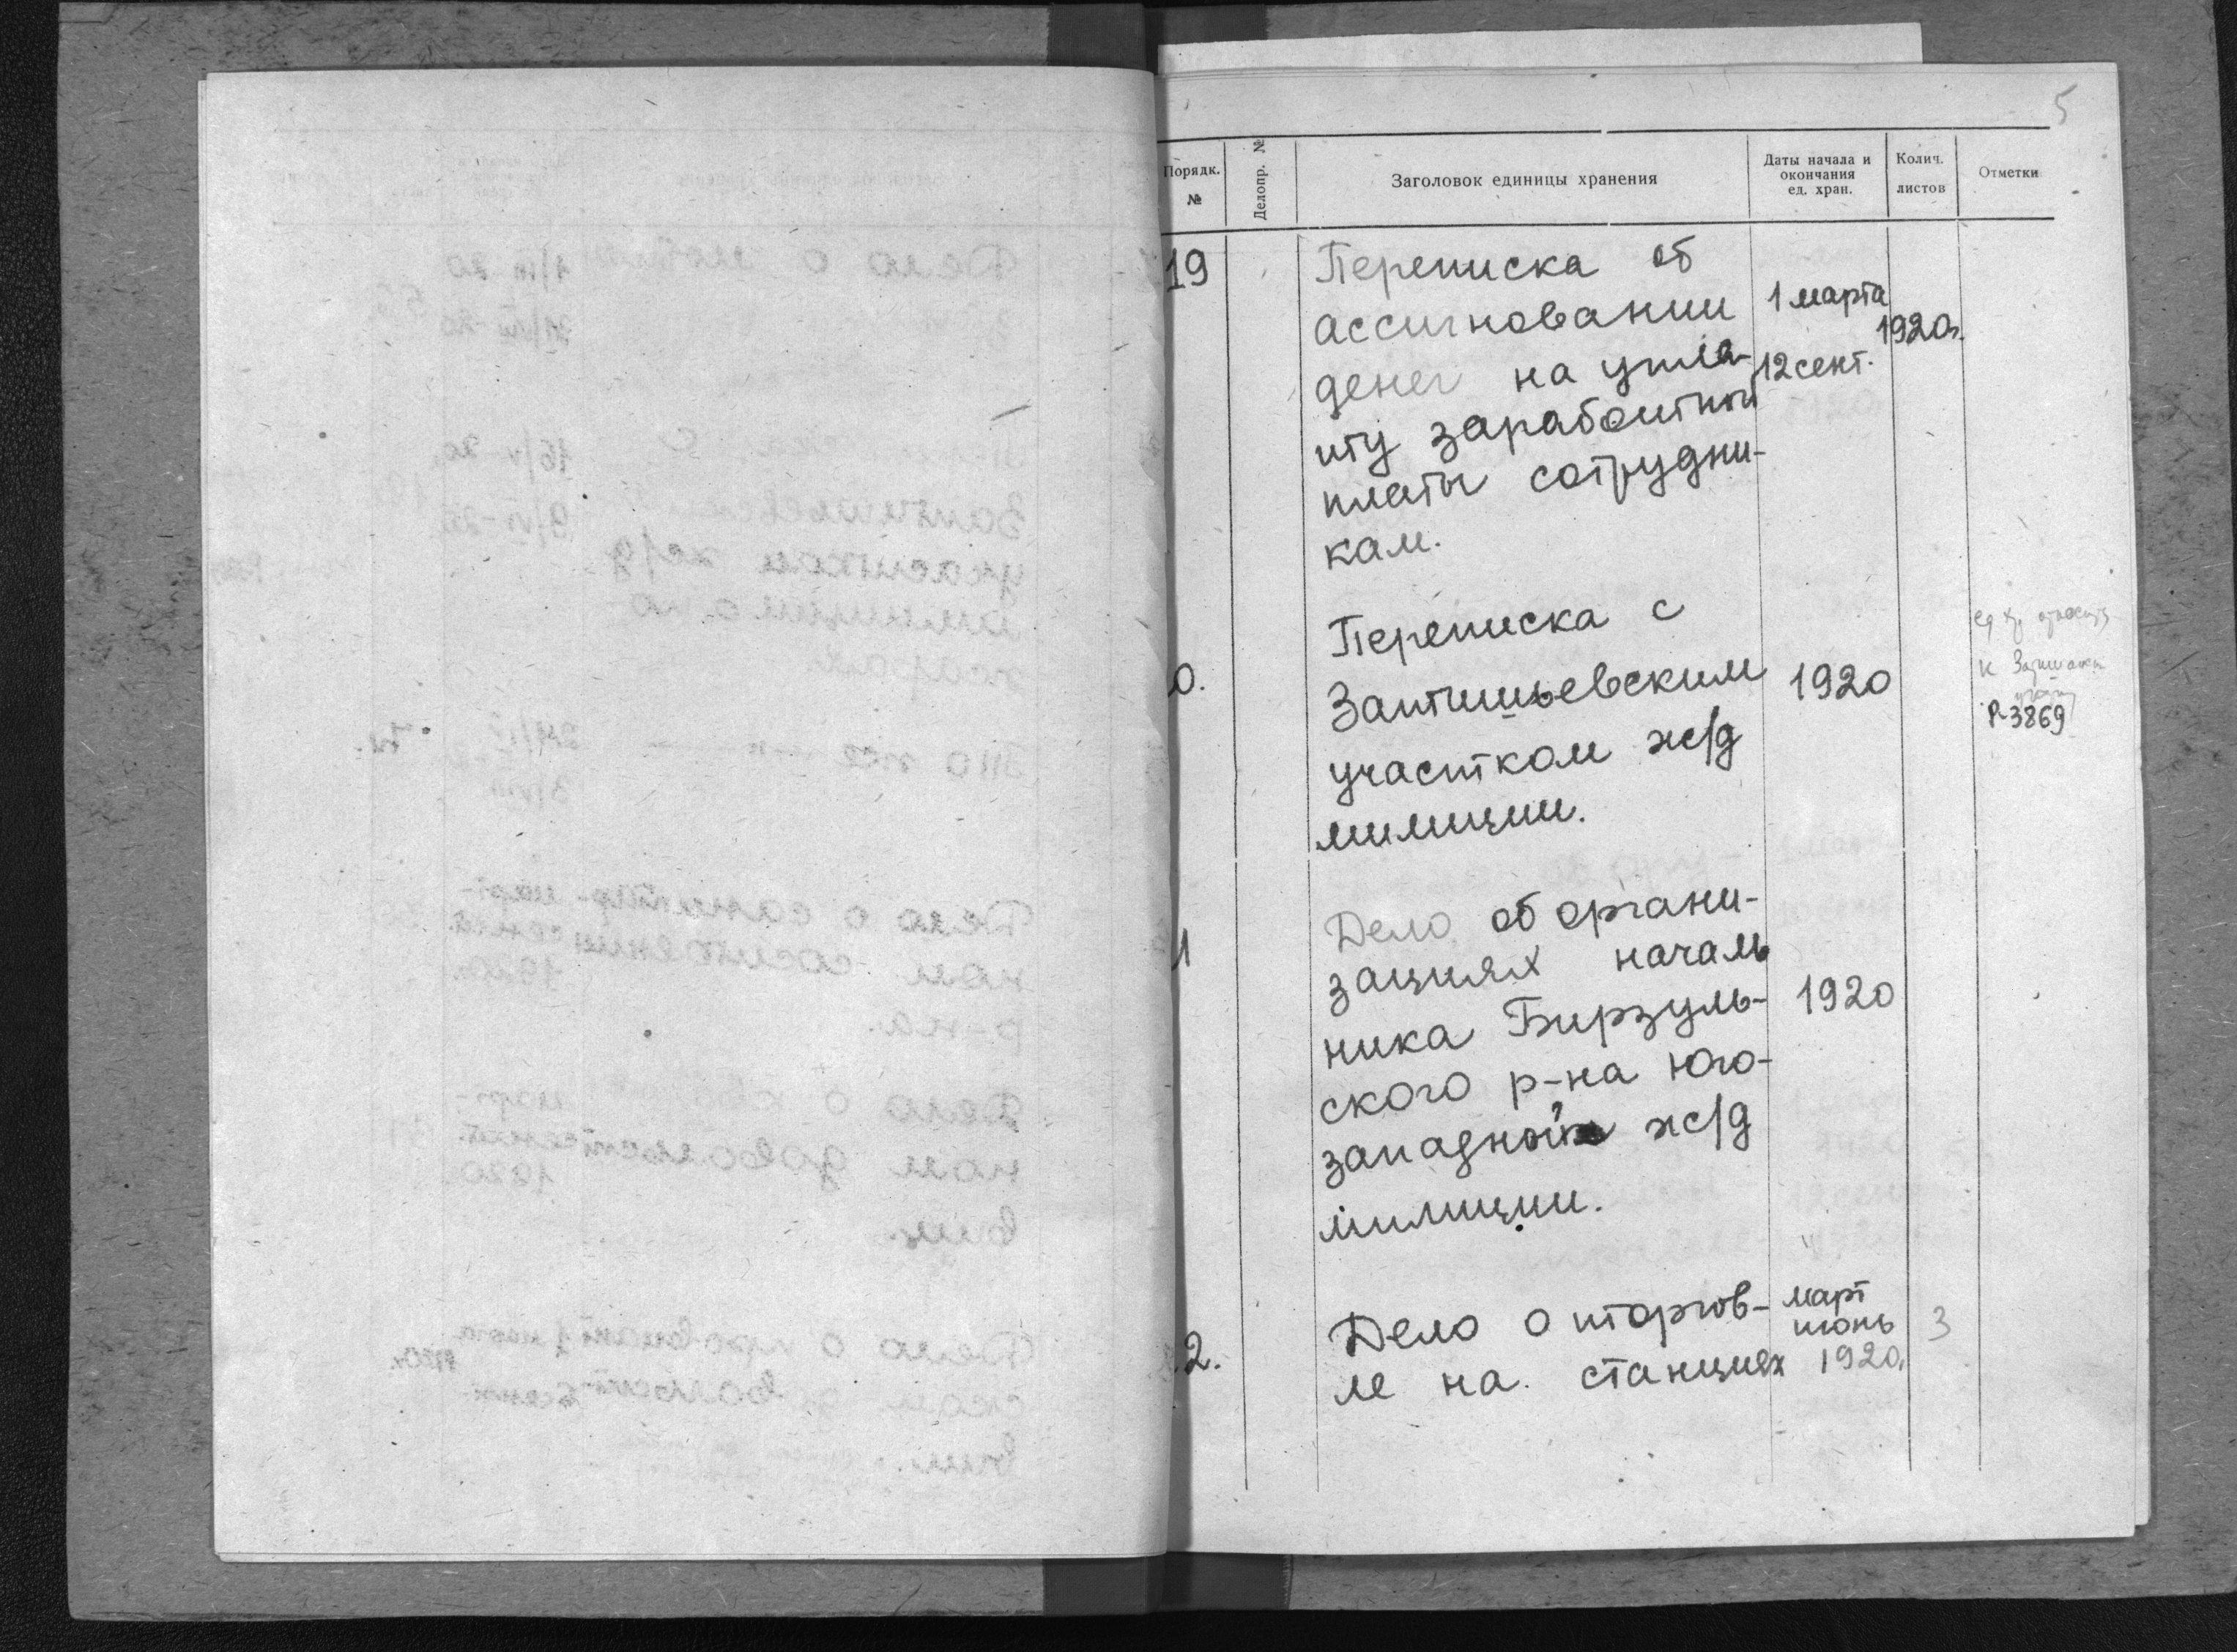 5
Порядк. №
Делопр. №
Заголовок единицы хранения
Даты начала и окончания ед. хран.
Колич. листов
Отметки
19
Переписка об
ассигновании
денег на упла-
ту заработной
платы сотрудни-
кам.
1 марта
1920г.
12 сент.
0.
Переписка с
Затишьевским
участком ж/д
милиции.
1920
к
Р-3869
1
Дело об органи-
зациях началь
ника Бирзуль-
ского р-на Юго-
западной ж/д
милиции.
1920
2.
Дело о торгов-
ле на станциях
март
июнь
1920г.
3